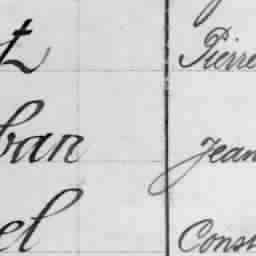 t Pierre
ban Jean
el Const